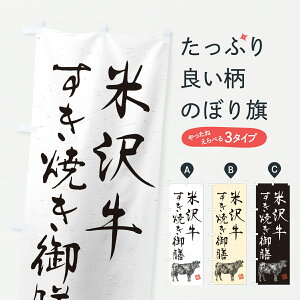 米沢牛
すき焼き御膳
たっぷり
良い柄
のぼり旗
やったね
えらべる
3タイプ
A
B
C
米沢牛
すき焼き御膳
米沢牛
すき焼き御膳
米沢牛
すき焼き御膳